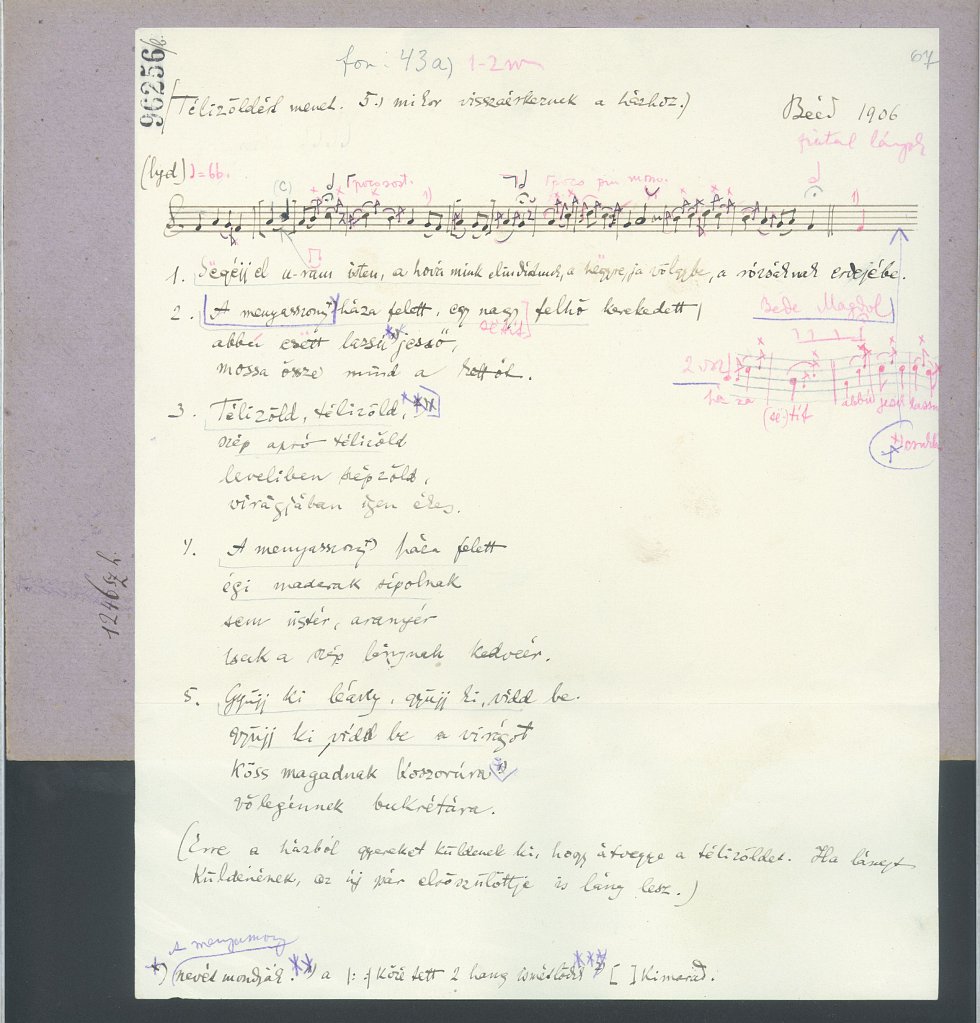 96256/b.
fon. 43a) 1-2 vsz
67
Télizöldért menet. 5.) mikor visszaérkeznek a házhoz.)
Bééd 1906
fiatal lányok
(lyd) ♩=66.
(C)
1)
1. Segéjj el u-ram isten, a hová mink elindúltunk, a hëgyre, ja völgybe, a rózsáknak erdejébe.
2. A menyasszony*) háza felett, egy nagy felhő kerekedett
Bede Magdol
setét
abbú esëtt lassú jesső,
mossa össze mind a
2 vsz
há za
(se)tét
abbú jesső lassú
3. Télizöld, télizöld,
szép apró télizöld
leveliben szépzöld,
virágjában igen ékes.
4. A menyasszony*) háza felett
égi madarak sípolnak
sem üstér, aranyér
csak a szép lánynak kedveér.
5. Gyüjj ki leány, gyüjj ki, vidd be.
gyüjj ki vidd be a virágot
Köss magadnak koszorúra
vőlegénnek bukrétára.
(Erre a házból gyereket küldenek ki, hogy átvegye a télizöldet. Ha lányt
küldenének, az új pár elsőszülöttje is lány lesz.)
A menyasszony
*) nevét mondják. **) a |: :| közé tett 2 hang ismétlődik ***) [ ] kimarad.
1246